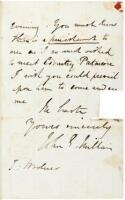 evening. You must know
this is a punishment to
me as I so much wished
to meet Coventry Patmore
I wish you could prevail
upon him to come and see
me
In haste
Yours sincerely
John E Millais
T. Woolner